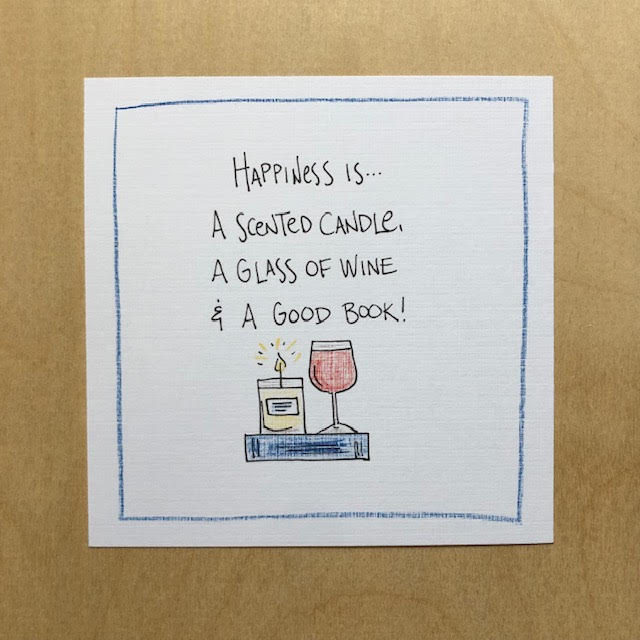 HAPPINESS IS...
A SCENTED CANDLE,
A GLASS OF WINE
& A GOOD BOOK!